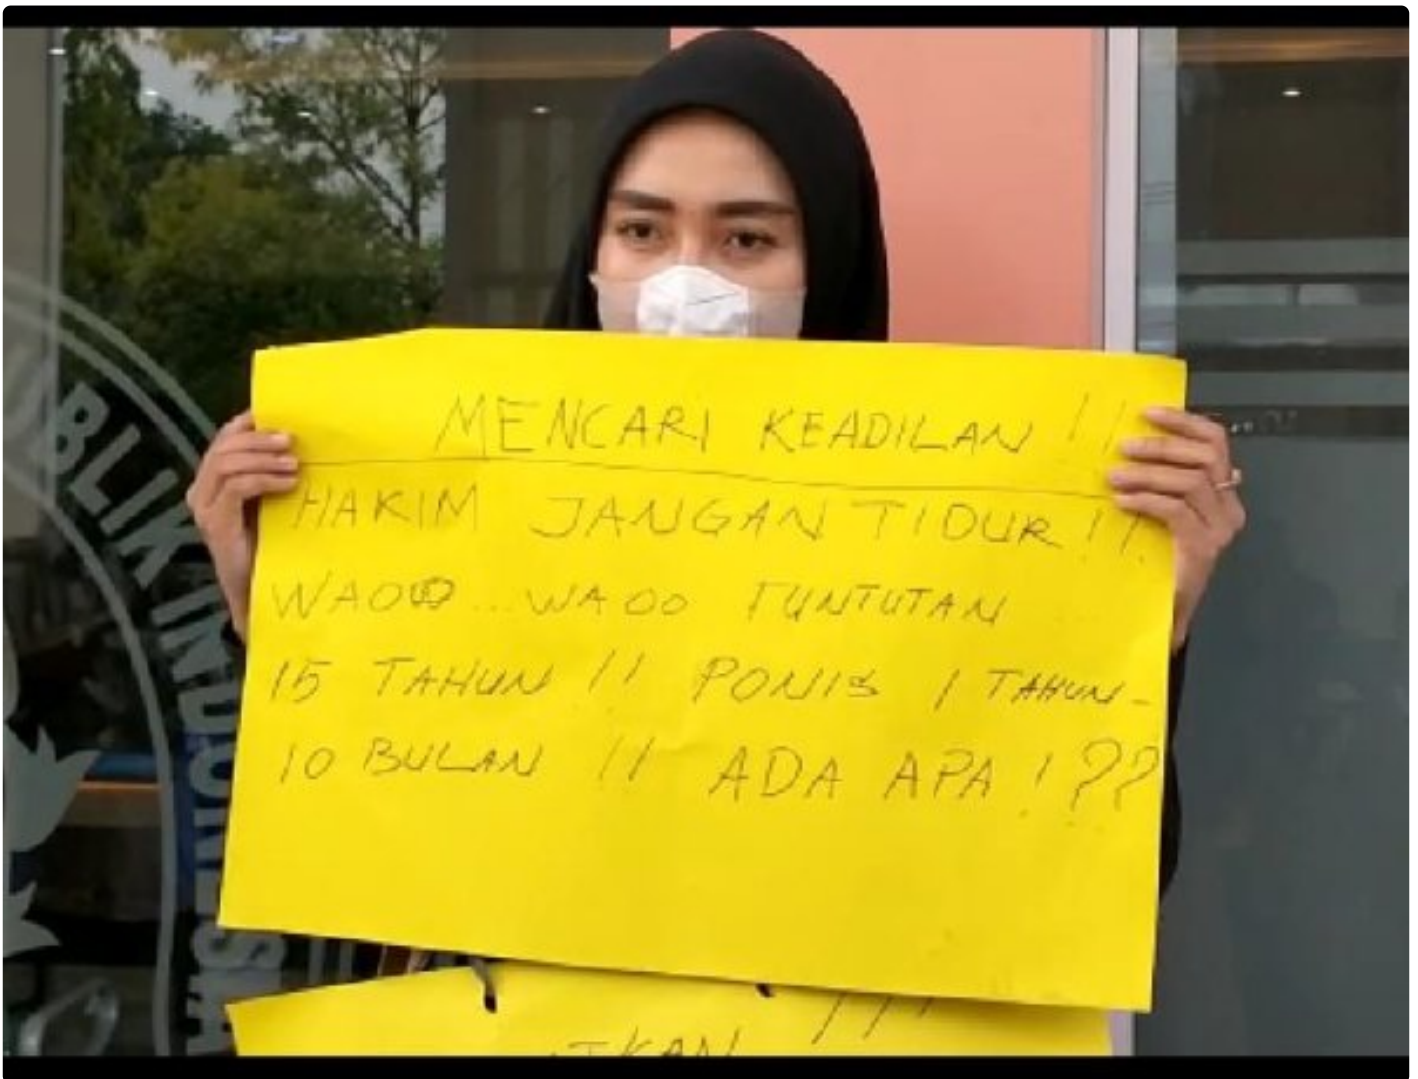 MENCARI KEADILAN !!
HAKIM JANGAN TIDUR !!
WAOO .. WAOO TUNTUTAN
15 TAHUN !! PONIS 1 TAHUN -
10 BULAN !! ADA APA ! ??
BLIK INDONESIA
IKAN !!!